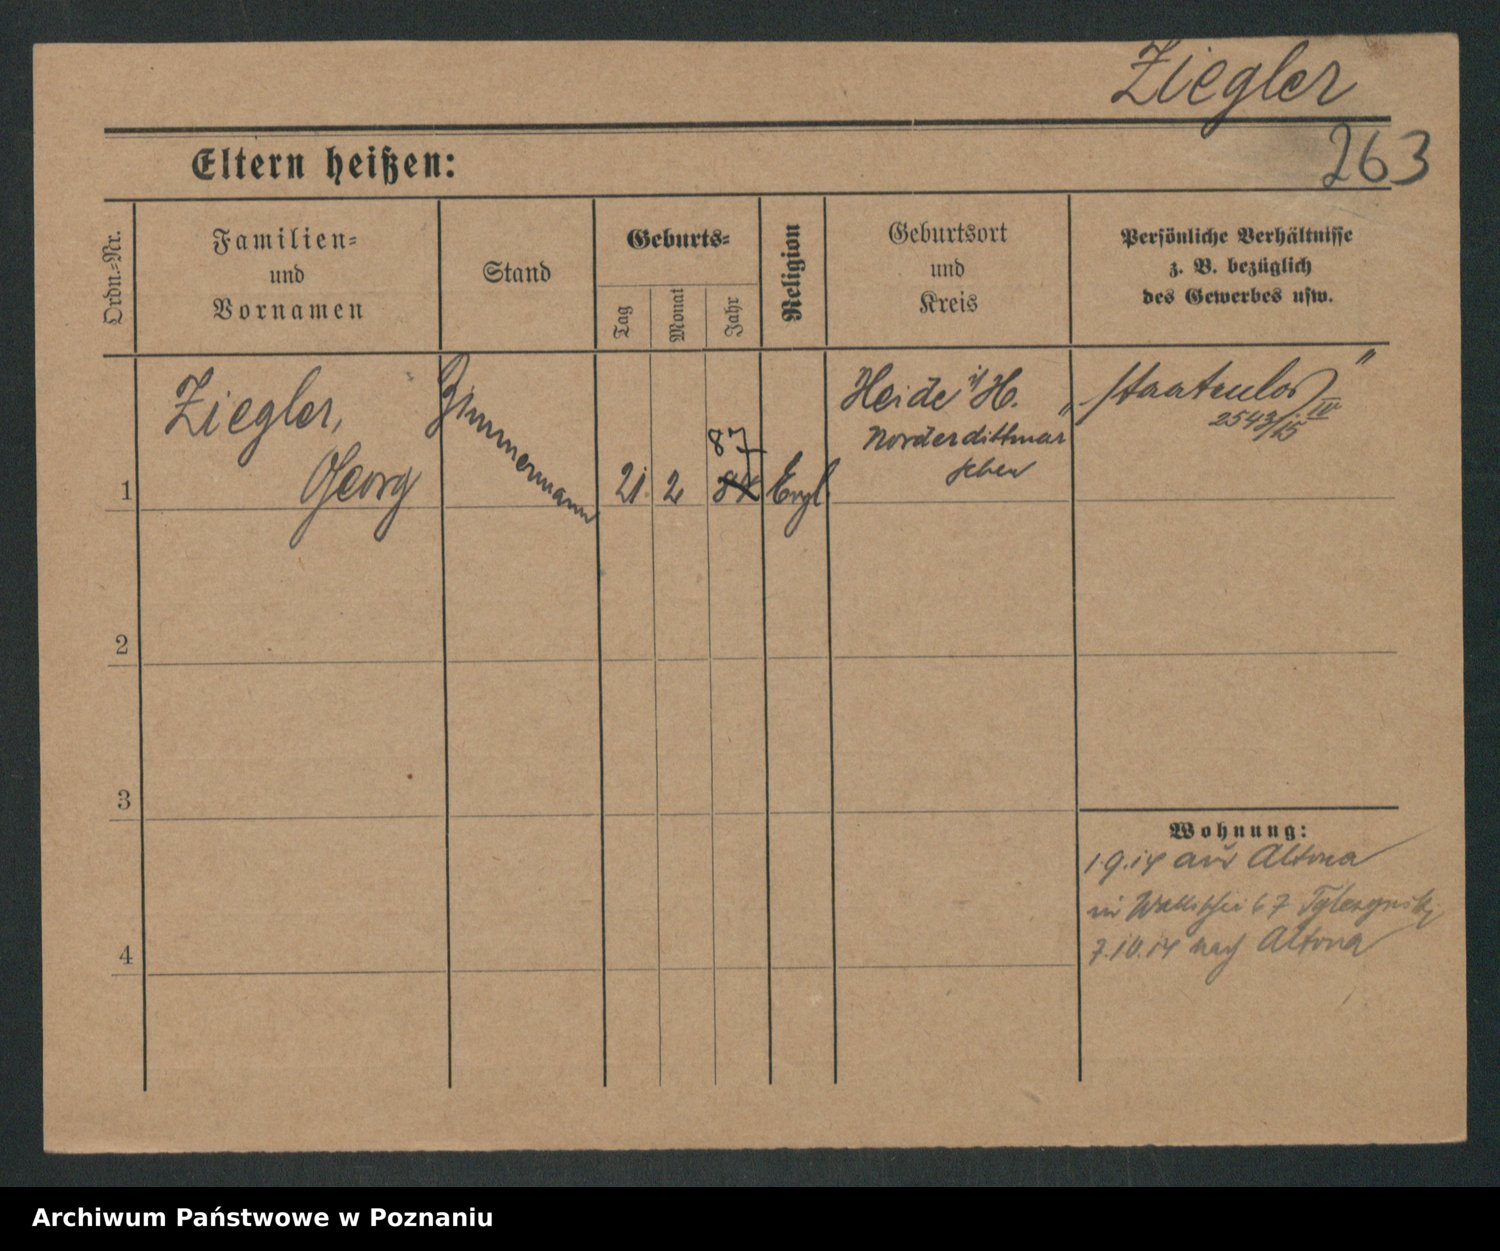 Ziegler
263
Eltern heißen:
Ordn.-Nr.
Familien-
und
Vornamen
Stand
Geburts-
Tag
Monat
Jahr
Religion
Geburtsort
und
Kreis
Persönliche Verhältnisse
z. B. bezüglich
des Gewerbes usw.
1
Ziegler,
Georg
Zimmermann
21. 2 84
87
Evgl.
Heide i/H.
Norderdithmar
schen
"staatenlos"
2543/15 IV
2
3
4
Wohnung:
1.9.14 aus Altona
in Wallischei 67
7.10.14 nach Altona
Archiwum Państwowe w Poznaniu